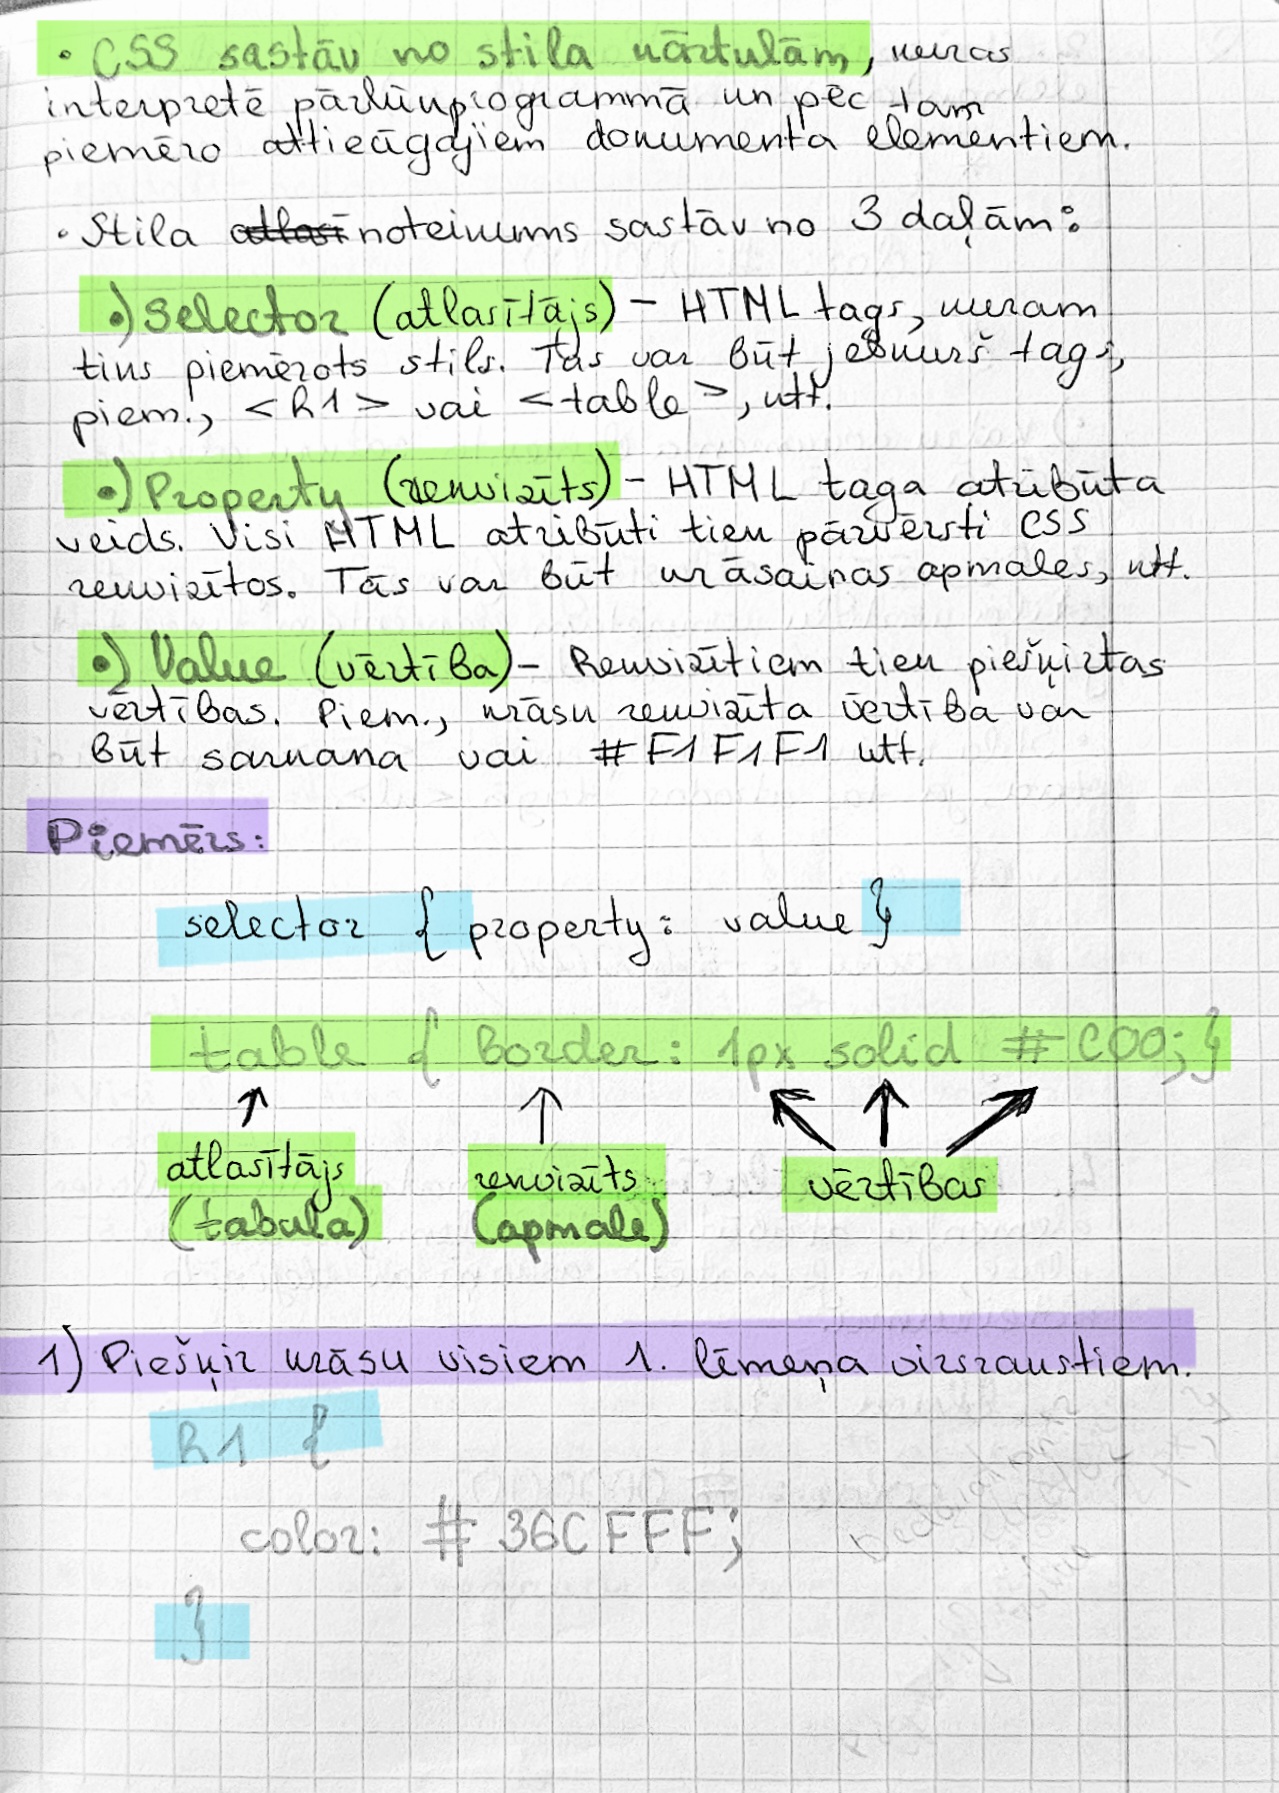 • CSS sastāv no stila kārtulām, kuras
interpretē pārlūkprogrammā un pēc tam
piemēro attiecīgajiem dokumenta elementiem.
• Stila atlasī noteikums sastāv no 3 daļām:
•) Selector (atlasītājs) – HTML tags, kuram
tiks piemērots stils. Tas var būt jebkurš tags,
piem., <h1> vai <table>, utt.
•) Property (rekvizīts) – HTML taga atribūta
veids. Visi HTML atribūti tiek pārvērsti CSS
rekvizītos. Tās var būt krāsainas apmales, utt.
•) Value (vērtība) – Rekvizītiem tiek piešķirtas
vērtības. Piem., krāsu rekvizīta vērtība var
būt sarkana vai #F1F1F1 utt.
Piemērs:
selector { property: value }
table { border: 1px solid #C00; }
atlasītājs rekvizīts vērtības
(tabula) (apmale)
1) Piešķir krāsu visiem 1. līmeņa virsrakstiem.
h1 {
color: #36CFFF;
}